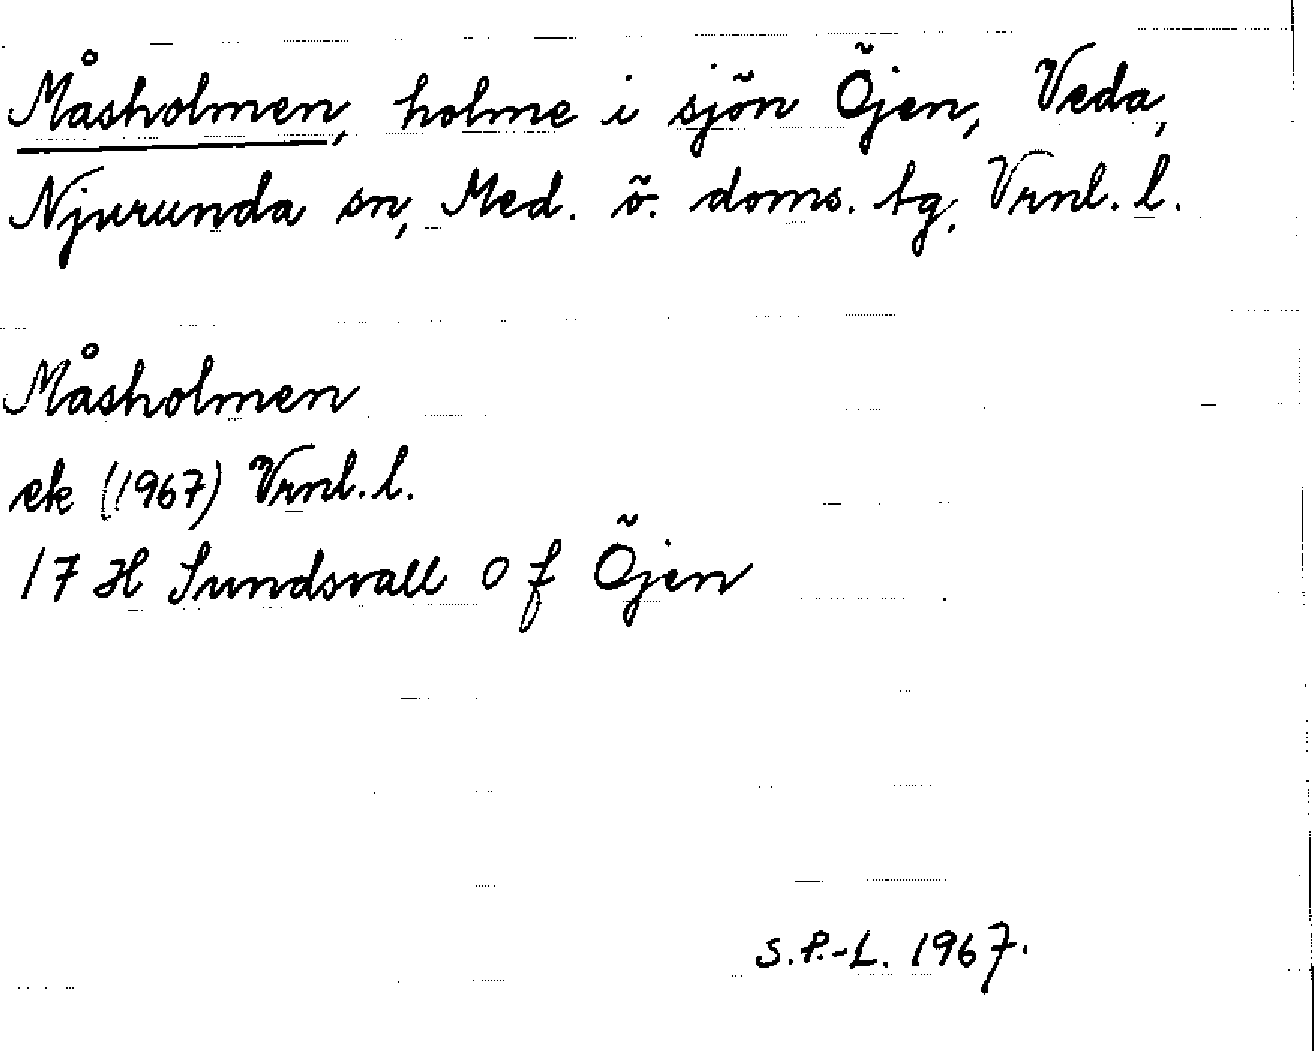 Måsholmen, holme i sjön Öjen, Veda,
Njurunda sn, Med. ö. doms. tg, Vrnl. l.
Måsholmen
ek (1967) Vrnl. l.
17 H Sundsvall O f Öjen
S.P.-L. 1967.